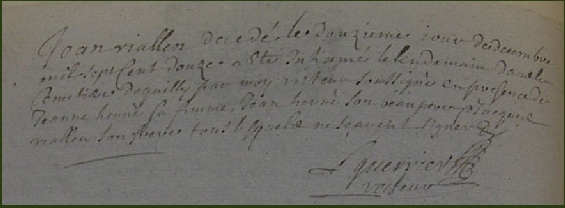 Jean riallen decedé le douzieme iour de decembre
mil sept Cent douze a été Inhumé le lendemain dans le
Cimetiere de quilly par moy recteur soussigné en presence de
Jeanne hervé sa femme Jean hervé son beaupere Jacques
riallen son frere tous lesquels ne scavent signer
guerrier
recteur